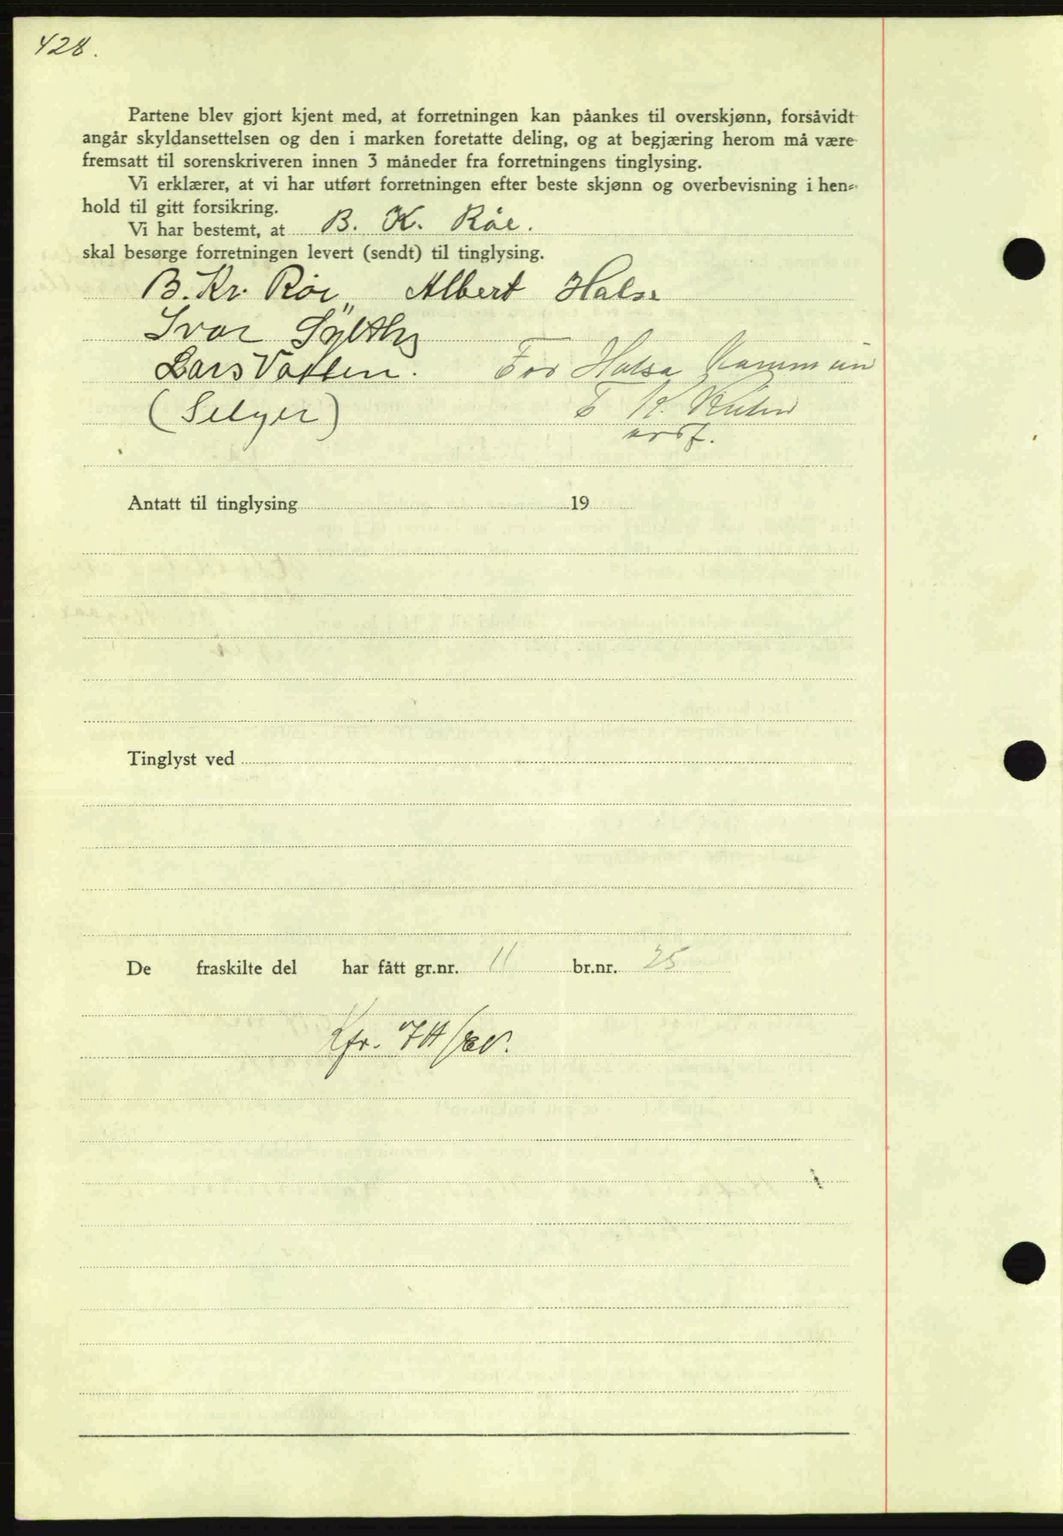 428.
Partene blev gjort kjent med, at forretningen kan påankes til overskjønn, forsåvidt
angår skyldansettelsen og den i marken foretatte deling, og at begjæring herom må være
fremsatt til sorenskriveren innen 3 måneder fra forretningens tinglysing.
Vi erklærer, at vi har utført forretningen efter beste skjønn og overbevisning i hen-
hold til gitt forsikring.
Vi har bestemt, at B. K. Røe.
skal besørge forretningen levert (sendt) til tinglysing.
B. Kr. Røe Albert Halse
Ivar
Lars For Halsa Kommun
(Selger) K.
Antatt til tinglysing 19
Tinglyst ved
De fraskilte del har fått gr.nr. 11 br.nr. 25
Kfr.